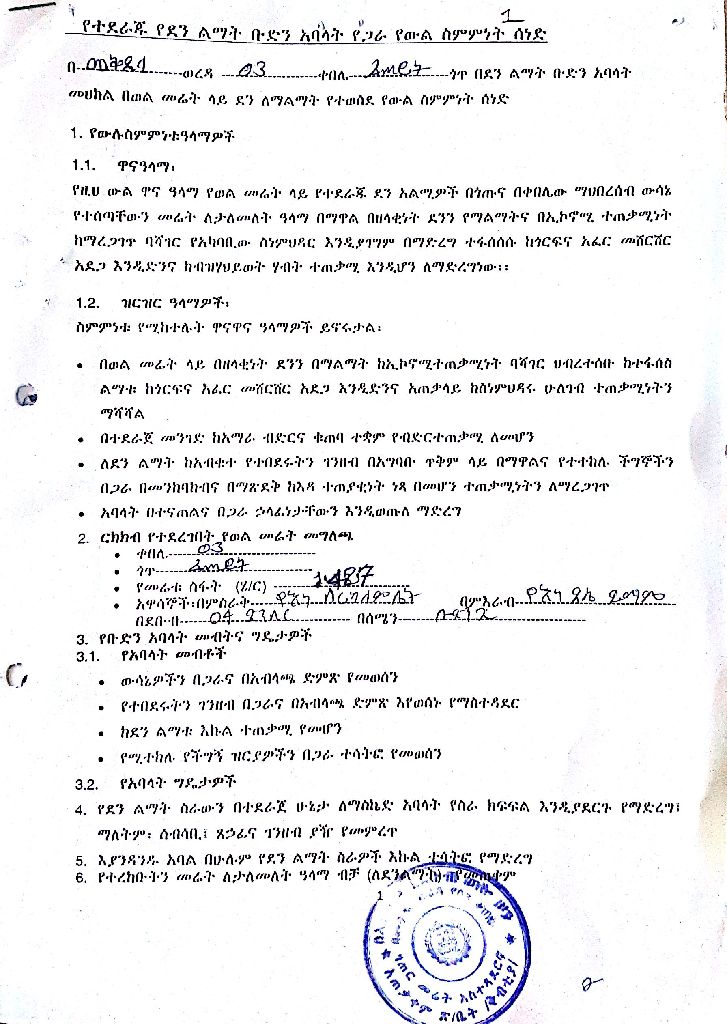 1
የተደራጁ የደን ልማት ቡድን አባላት የጋራ የውል ስምምነት ሰነድ
በ መቅደላ ወረዳ 03 ቀበሌ ጎጥ በደን ልማት ቡድን አባላት
መሀከል በወል መሬት ላይ ደን ለማልማት የተወሰደ የውል ስምምነት ሰነድ
1. የውሉስምምነቱዓላማዎች
1.1. ዋናዓላማ፡
የዚህ ውል ዋና ዓላማ የወል መሬት ላይ የተደራጁ ደን አልሚዎች በጎጡና በቀበሌው ማህበረሰብ ውሳኔ
የተሰጣቸውን መሬት ለታለመለት ዓላማ በማዋል በዘላቂነት ደንን የማልማትና በኢኮኖሚ ተጠቃሚነት
ከማረጋገጥ ባሻገር የአካባቢው ስነምህዳር እንዲያገግም በማድረግ ተፋሰሱ ከጎርፍና አፈር መሸርሸር
አደጋ እንዲድንና ከብዝሃህይወት ሃብት ተጠቃሚ እንዲሆን ለማድረግነው፡፡
1.2. ዝርዝር ዓላማዎች፡
ስምምነቱ የሚከተሉት ዋናዋና ዓላማዎች ይኖሩታል፡
• በወል መሬት ላይ በዘላቂነት ደንን በማልማት ከኢኮኖሚተጠቃሚነት ባሻገር ህብረተሰቡ ከተፋሰስ
ልማቱ ከጎርፍና አፈር መሸርሸር አደጋ እንዲድንና አጠቃላይ ከስነምህዳሩ ሁለገብ ተጠቃሚነትን
ማሻሻል
• በተደራጀ መንገድ ከአማራ ብድርና ቁጠባ ተቋም የብድርተጠቃሚ ለመሆን
• ለደን ልማት ከአብቁተ የተበደሩትን ገንዘብ በአግባቡ ጥቅም ላይ በማዋልና የተተከሉ ችግኞችን
በጋራ በመንከባከብና በማጽደቅ ከእዳ ተጠያቂነት ነጻ በመሆን ተጠቃሚነትን ለማረጋገጥ
• አባላት በተናጠልና በጋራ ኃላፊነታቸውን እንዲወጡ ማድረግ
2. ርክክብ የተደረገበት የወል መሬት መግለጫ
• ቀበሌ 03
• ጎጥ
• የመሬቱ ስፋት (ሄ/ር) 1.487
• አዋሳኞች፡በምስራቅ በምእራብ
በደቡብ 04 በሰሜን
3. የቡድን አባላት መብትና ግዴታዎች
3.1. የአባላት መብቶች
• ውሳኔዎችን በጋራና በአብላጫ ድምጽ የመወሰን
• የተበደሩትን ገንዘብ በጋራና በአብላጫ ድምጽ እየወሰኑ የማስተዳደር
• ከደን ልማቱ እኩል ተጠቃሚ የመሆን
• የሚተከሉ የችግኝ ዝርያዎችን በጋራ ተሳትፎ የመወሰን
3.2. የአባላት ግዴታዎች
4. የደን ልማት ስራውን በተደራጀ ሁኔታ ለማስኬድ አባላት የስራ ክፍፍል እንዲያደርጉ የማድረግ፤
ማለትም፡ ሰብሳቢ፤ ጸኃፊና ገንዘብ ያዥ የመምረጥ
5. እያንዳንዱ አባል በሁሉም የደን ልማት ስራዎች እኩል ተሳትፎ የማድረግ
6. የተረከቡትን መሬት ለታለመለት ዓላማ ብቻ (ለደንልማት) የመጠቀም
1
ገጠር መሬት አስተዳደርና
አጠቃቀም ጽ/ቤት